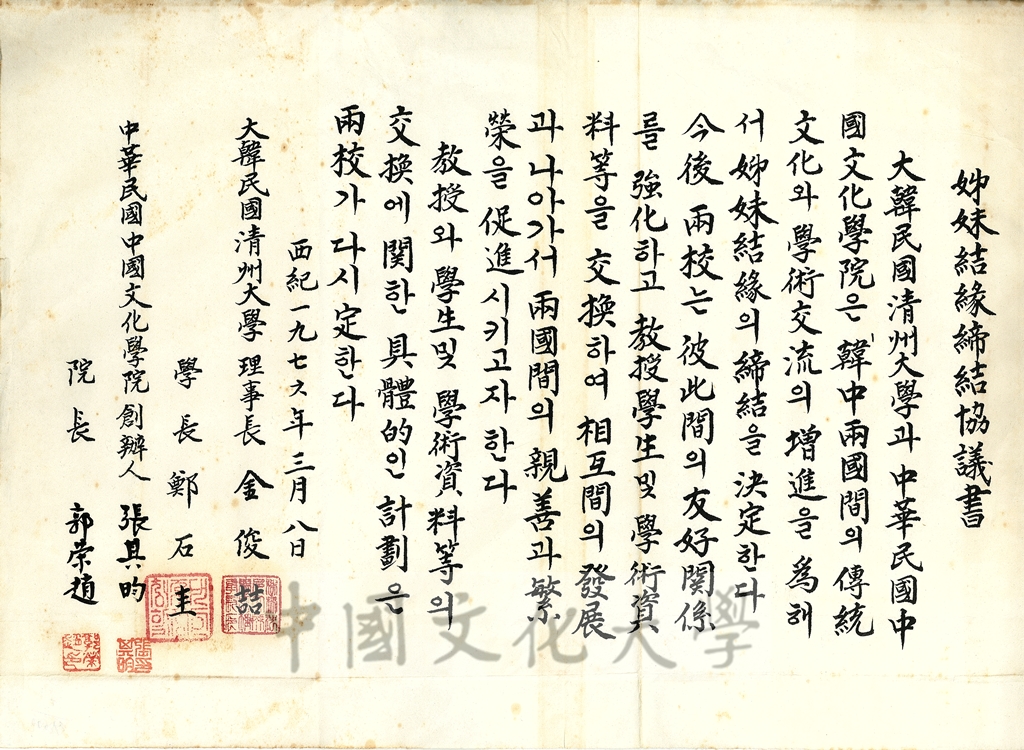 姊妹結緣締結協議書
大韓民國清州大學과 中華民國中
國文化學院은 韓中兩國間의 傳統
文化와 學術交流의 增進을 爲해
서 姊妹結緣의 締結을 決定한다
今後 兩校는 彼此間의 友好関係
를 強化하고 教授學生 및 學術資
料等을 交換하여 相互間의 發展
과 나아가서 兩國間의 親善과 繁
榮을 促進시키고자 한다
教授와 學生 및 學術資料等의
交換에 関한 具體的인 計劃은
兩校가 다시 定한다
西紀 一九七六年 三月 八日
大韓民國 清州大學 理事長 金俊喆
學長 鄭石圭
中華民國 中國文化學院 創辦人 張其昀
院長 郭榮趙
中國文化大學